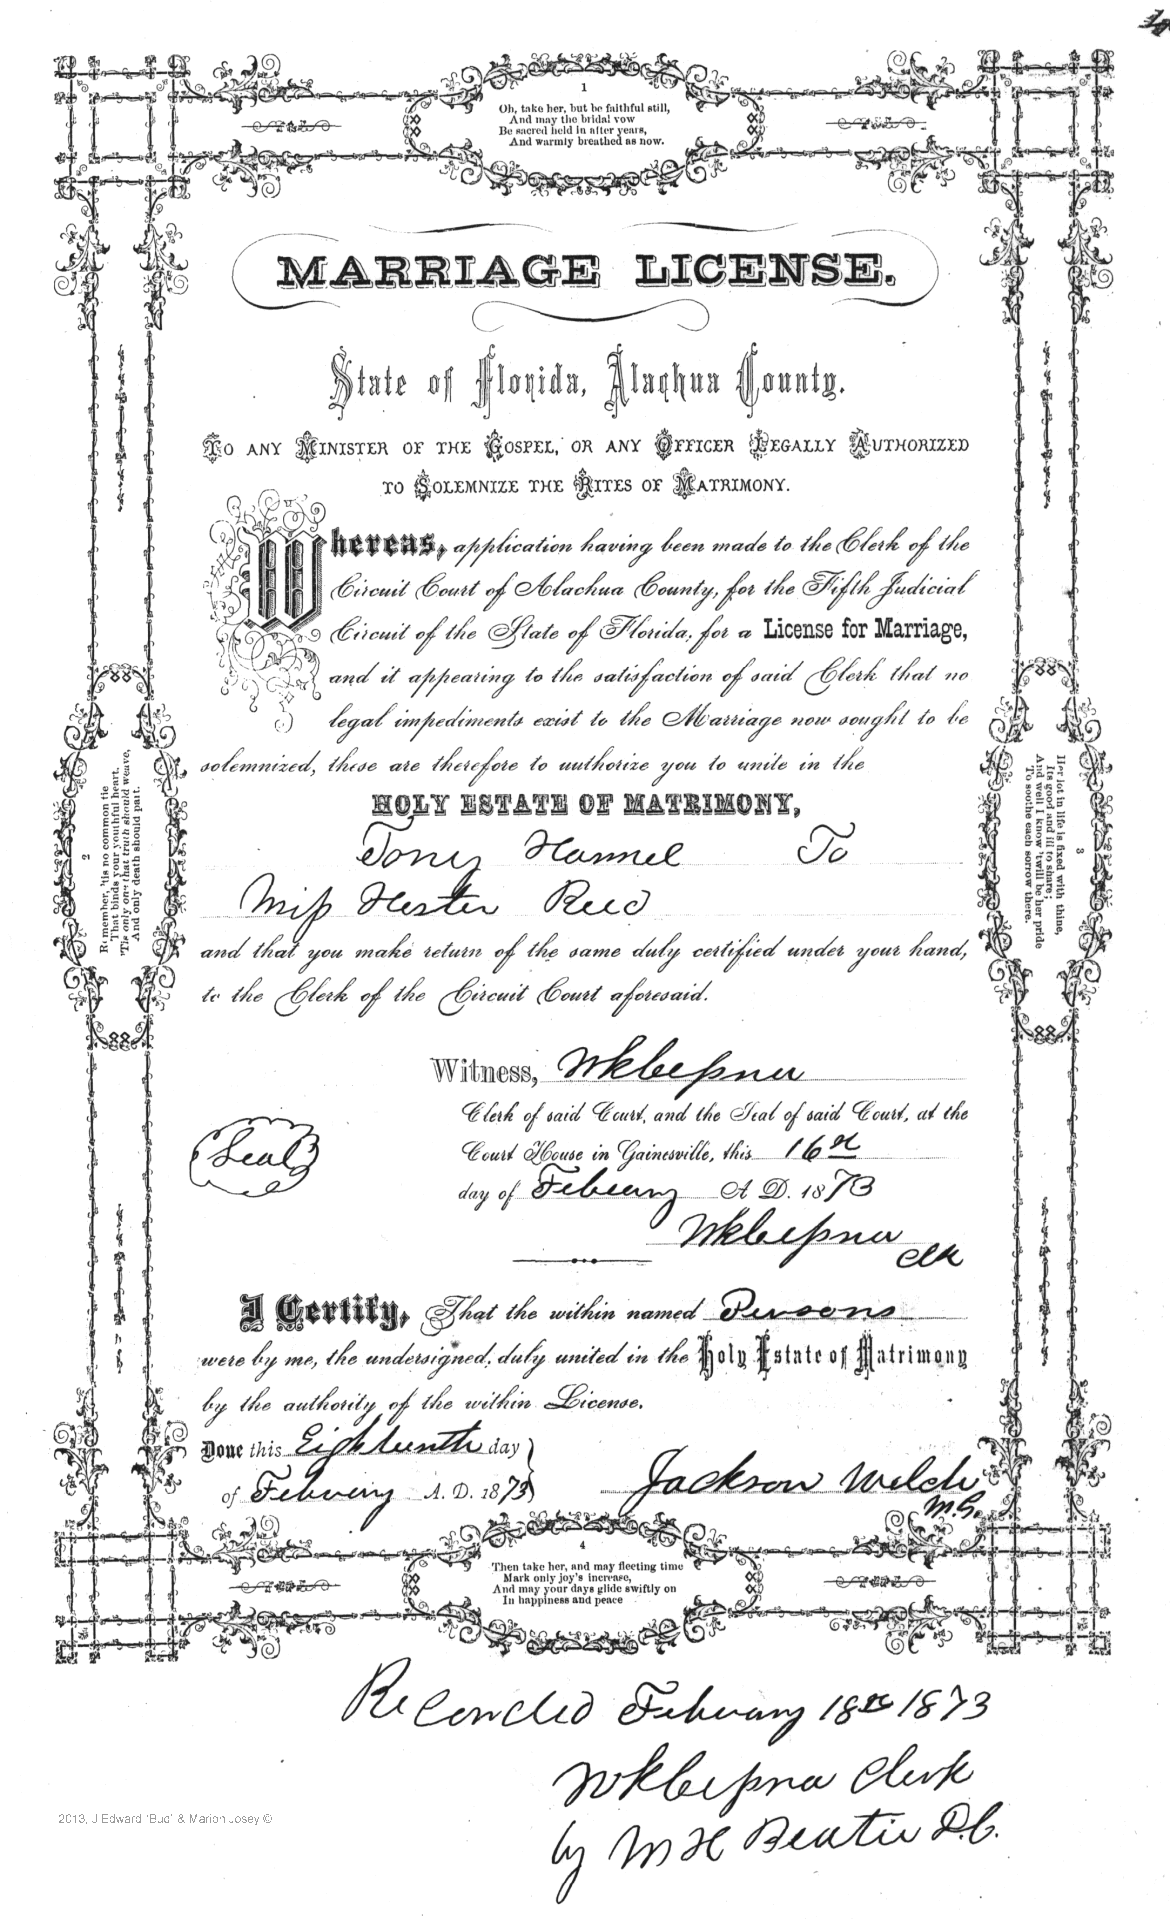 1
Oh, take her, but be faithful still,
And may the bridal vow
Be sacred held in after years,
And warmly breathed as now.
MARRIAGE LICENSE.
State of Florida, Alachua County.
TO ANY MINISTER OF THE GOSPEL, OR ANY OFFICER LEGALLY AUTHORIZED
TO SOLEMNIZE THE RITES OF MATRIMONY.
Whereas, application having been made to the Clerk of the
Circuit Court of Alachua County, for the Fifth Judicial
Circuit of the State of Florida, for a License for Marriage,
and it appearing to the satisfaction of said Clerk that no
legal impediments exist to the Marriage now sought to be
solemnized, these are therefore to authorize you to unite in the
HOLY ESTATE OF MATRIMONY,
Tony Hammel To
Miss Hester Reed
and that you make return of the same duly certified under your hand,
to the Clerk of the Circuit Court aforesaid.
2
Remember, 'tis no common tie
That binds your youthful heart,
'Tis only one that truth should weave,
And only death should part.
3
Her lot in life is fixed with thine,
Its good and ill to share;
And well I know 'twill be her pride
To soothe each sorrow there.
Witness, Wk Cessna
Clerk of said Court, and the Seal of said Court, at the
Court House in Gainesville, this 16th
day of February A. D. 1873
Wk Cessna
Clk
Seal
I Certify, That the within named Persons
were by me, the undersigned, duly united in the Holy Estate of Matrimony
by the authority of the within License.
Done this Eighteenth day
of February A. D. 1873
Jackson Welch
M.G.
4
Then take her, and may fleeting time
Mark only joy's increase,
And may your days glide swiftly on
In happiness and peace
Recorded February 18th 1873
Wk Cessna Clerk
by M H Beatie D.C.
2013, J Edward "Bud" & Marion Josey ©